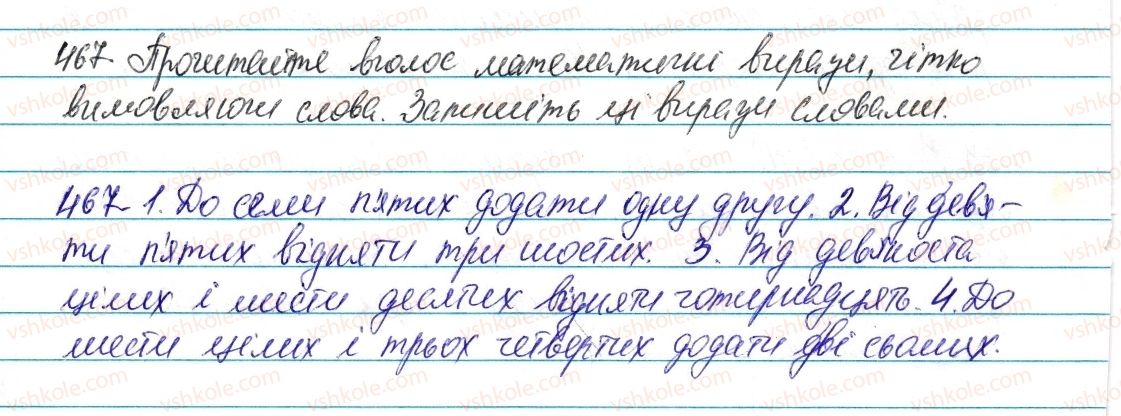 467. Прочитайте вголос математичні вирази, чітко
вимовляючи слова. Запишіть ці вирази словами.
467. 1. До семи п'ятих додати одну другу. 2. Від девя-
ти п'ятих відняти три шостих. 3. Від дев'яноста
цілих і шести десятих відняти чотирнадцять. 4. До
шести цілих і трьох четвертих додати дві сьомих.